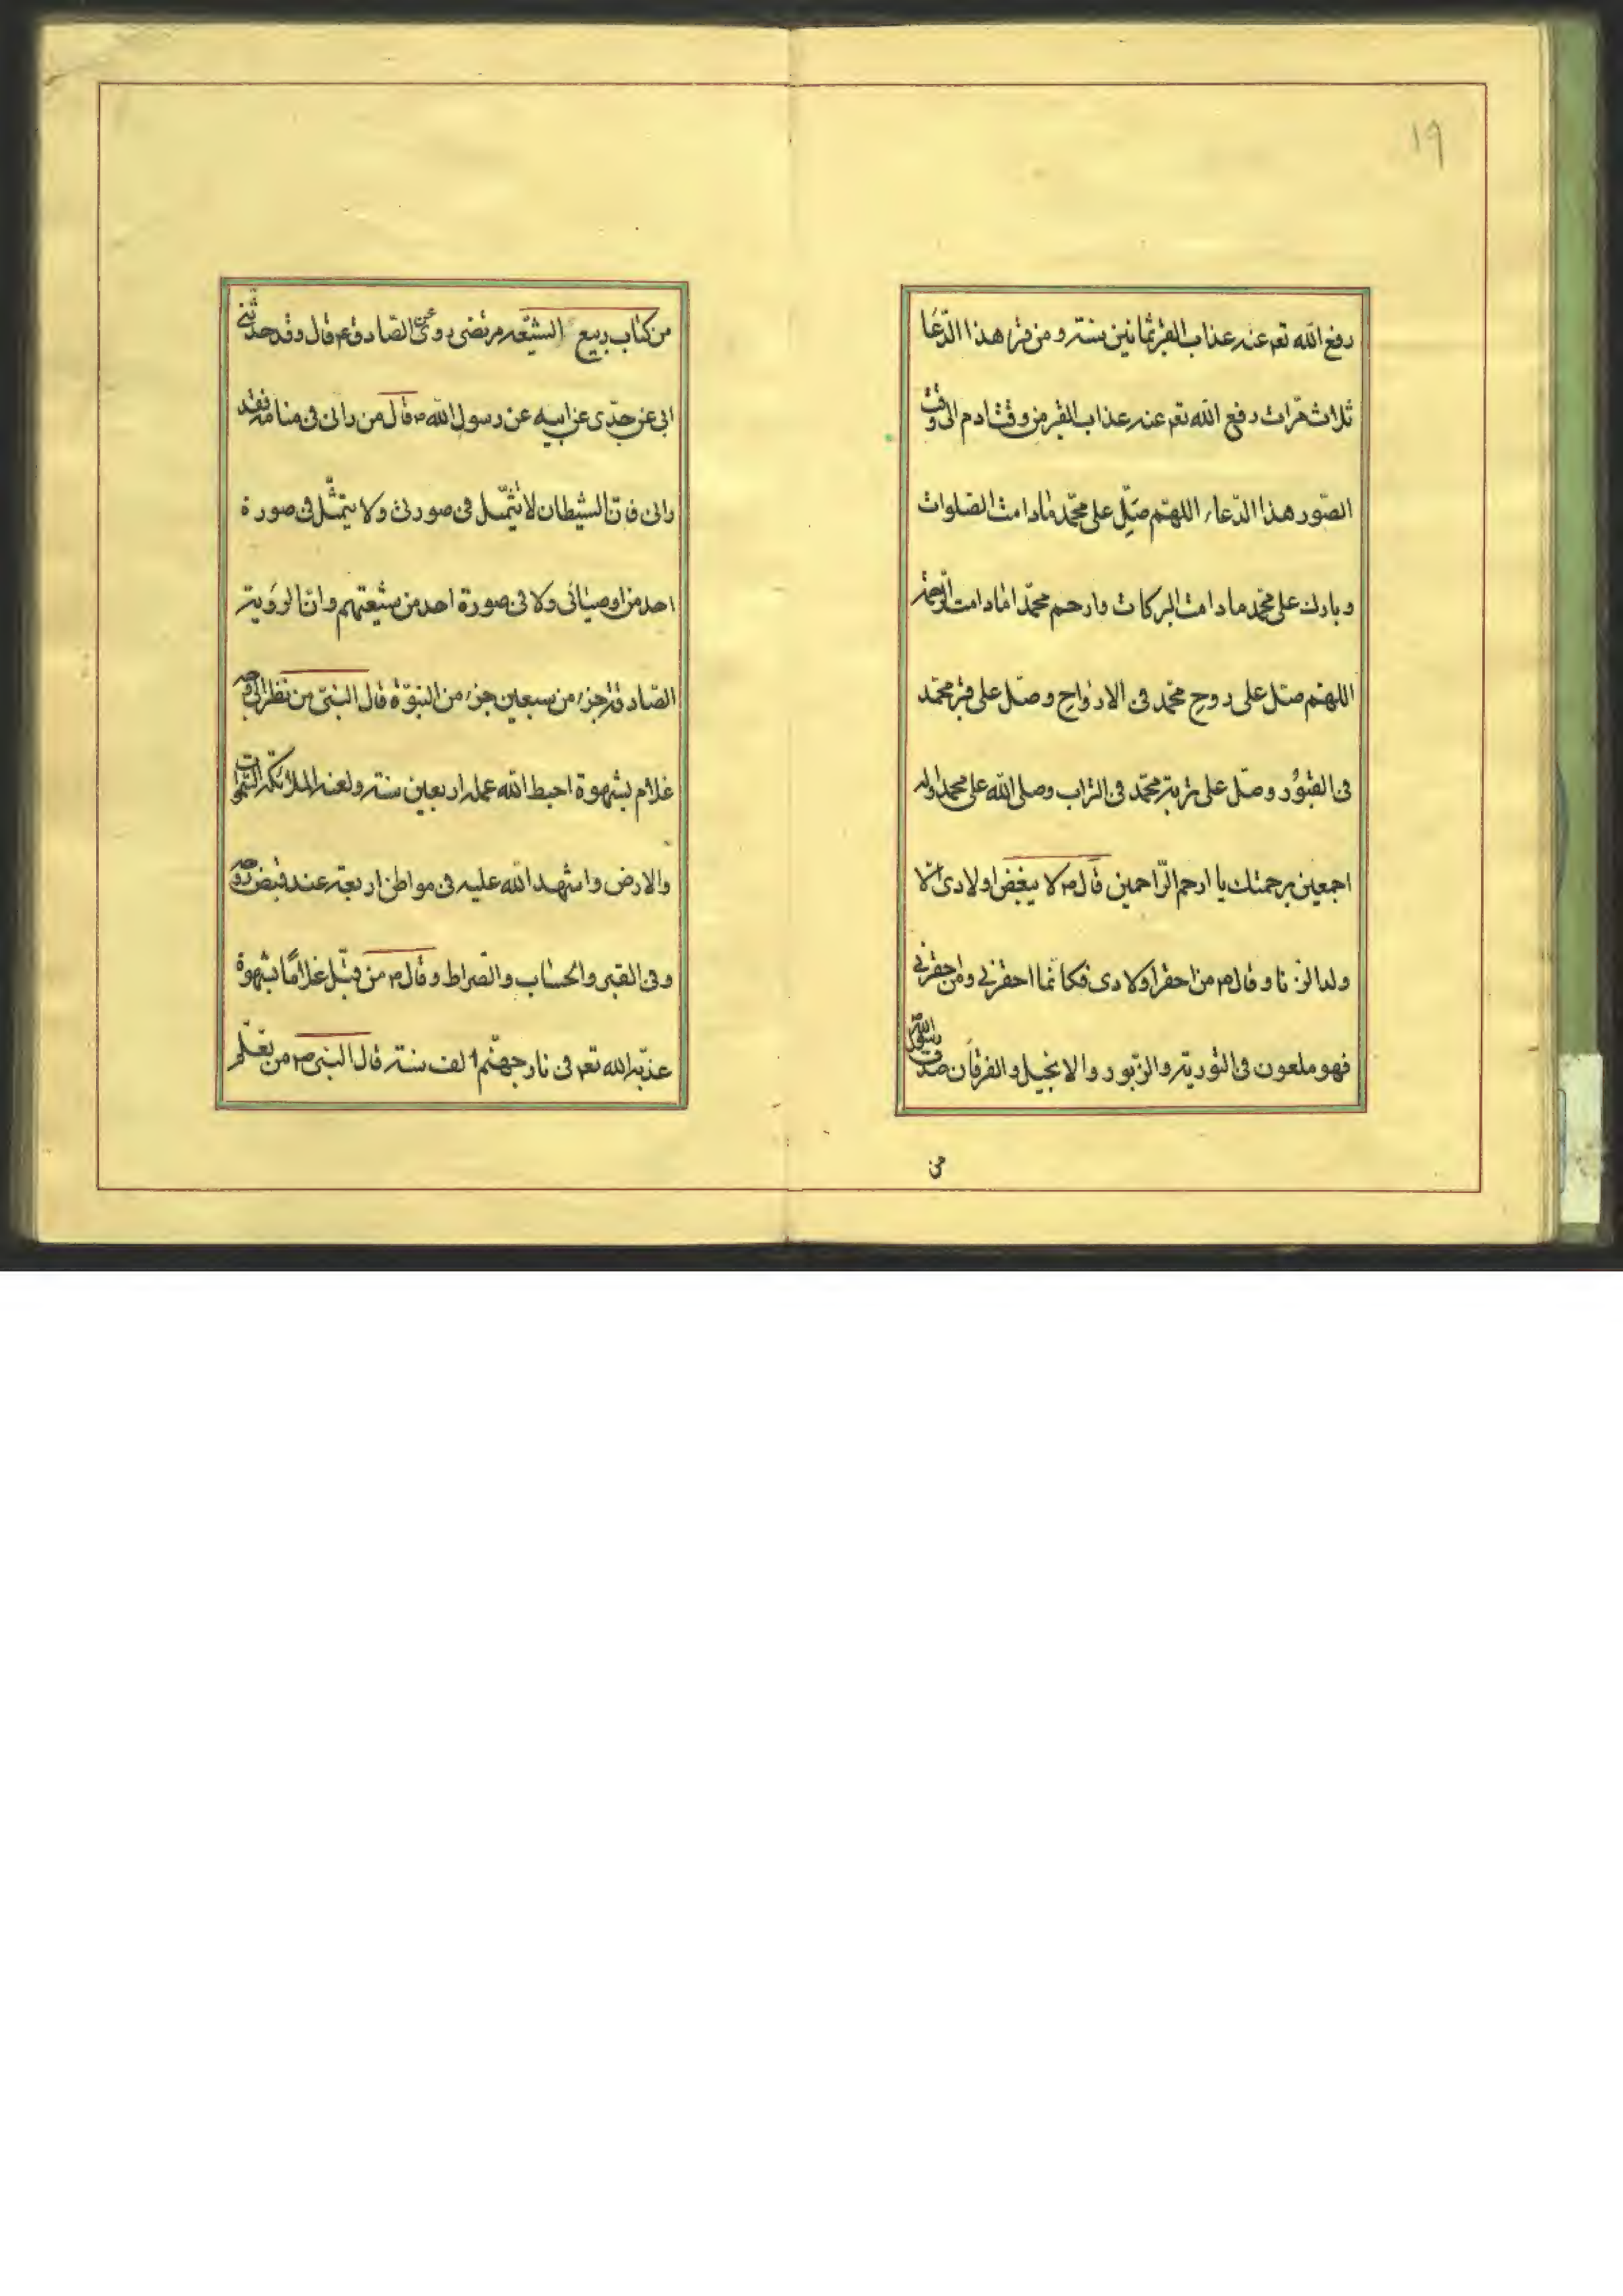 ١٩
رفع الله تعم عنه عذاب القبر ثمانين سنة و من قرا هذا الدّعَا
ثلاث مرّات رفع الله تعم عنه عذاب القبر من وقت ادم الى وقت
الصّور هذا الدّعاء اللهمّ صَلِّ على محمّد مادامت الصلوات
و بارك على محمّد مادامت البركات وارحم محمّدا مادامت الرّحمة
اللهمّ صلّ على روح محمّد فى الارواح وصلّ على قبر محمّد
فى القبُور وصلّ على تربة محمّد فى التراب وصلى الله على محمد واله
اجمعين برحمتك يا ارحم الرّاحمين قال ص لا يبغض اولادى الّا
ولد الزنا و قال ص من احقر اولادى فكانّما احقرنى ومن احقرنى
فهو ملعون فى التورية والزّبور والانجيل والفرقان صدق رسول الله
من
من كتاب ربيع الشيّعه مرتضى روى عن الصّادق ع قال وقد حدّثنى
ابى عن جدّى عن ابيه عن رسول الله ص قال من رانى فى منامه فقد
رانى فانّ الشيطان لا يتمّثل فى صورتى ولا يتمثّل فى صورة
احد من اوصيائى ولا فى صورة احد من شيعتهم وانّ الرؤية
الصّادقة جزء من سبعين جزء من النبوّة قال النبىّ من نظر الى وجه
غلام بشهوة احبط الله عمله اربعين سنة ولعنه الملائكة السّموات
والارض واشهد الله عليه فى مواطن اربعة عند قبض روحه
وفى القبر والحساب والصّراط وقال ص من قبّل غلامًا بشهوة
عذّبه الله تعم فى نار جهنّم الف سنة قال النبى ص من تعلّم